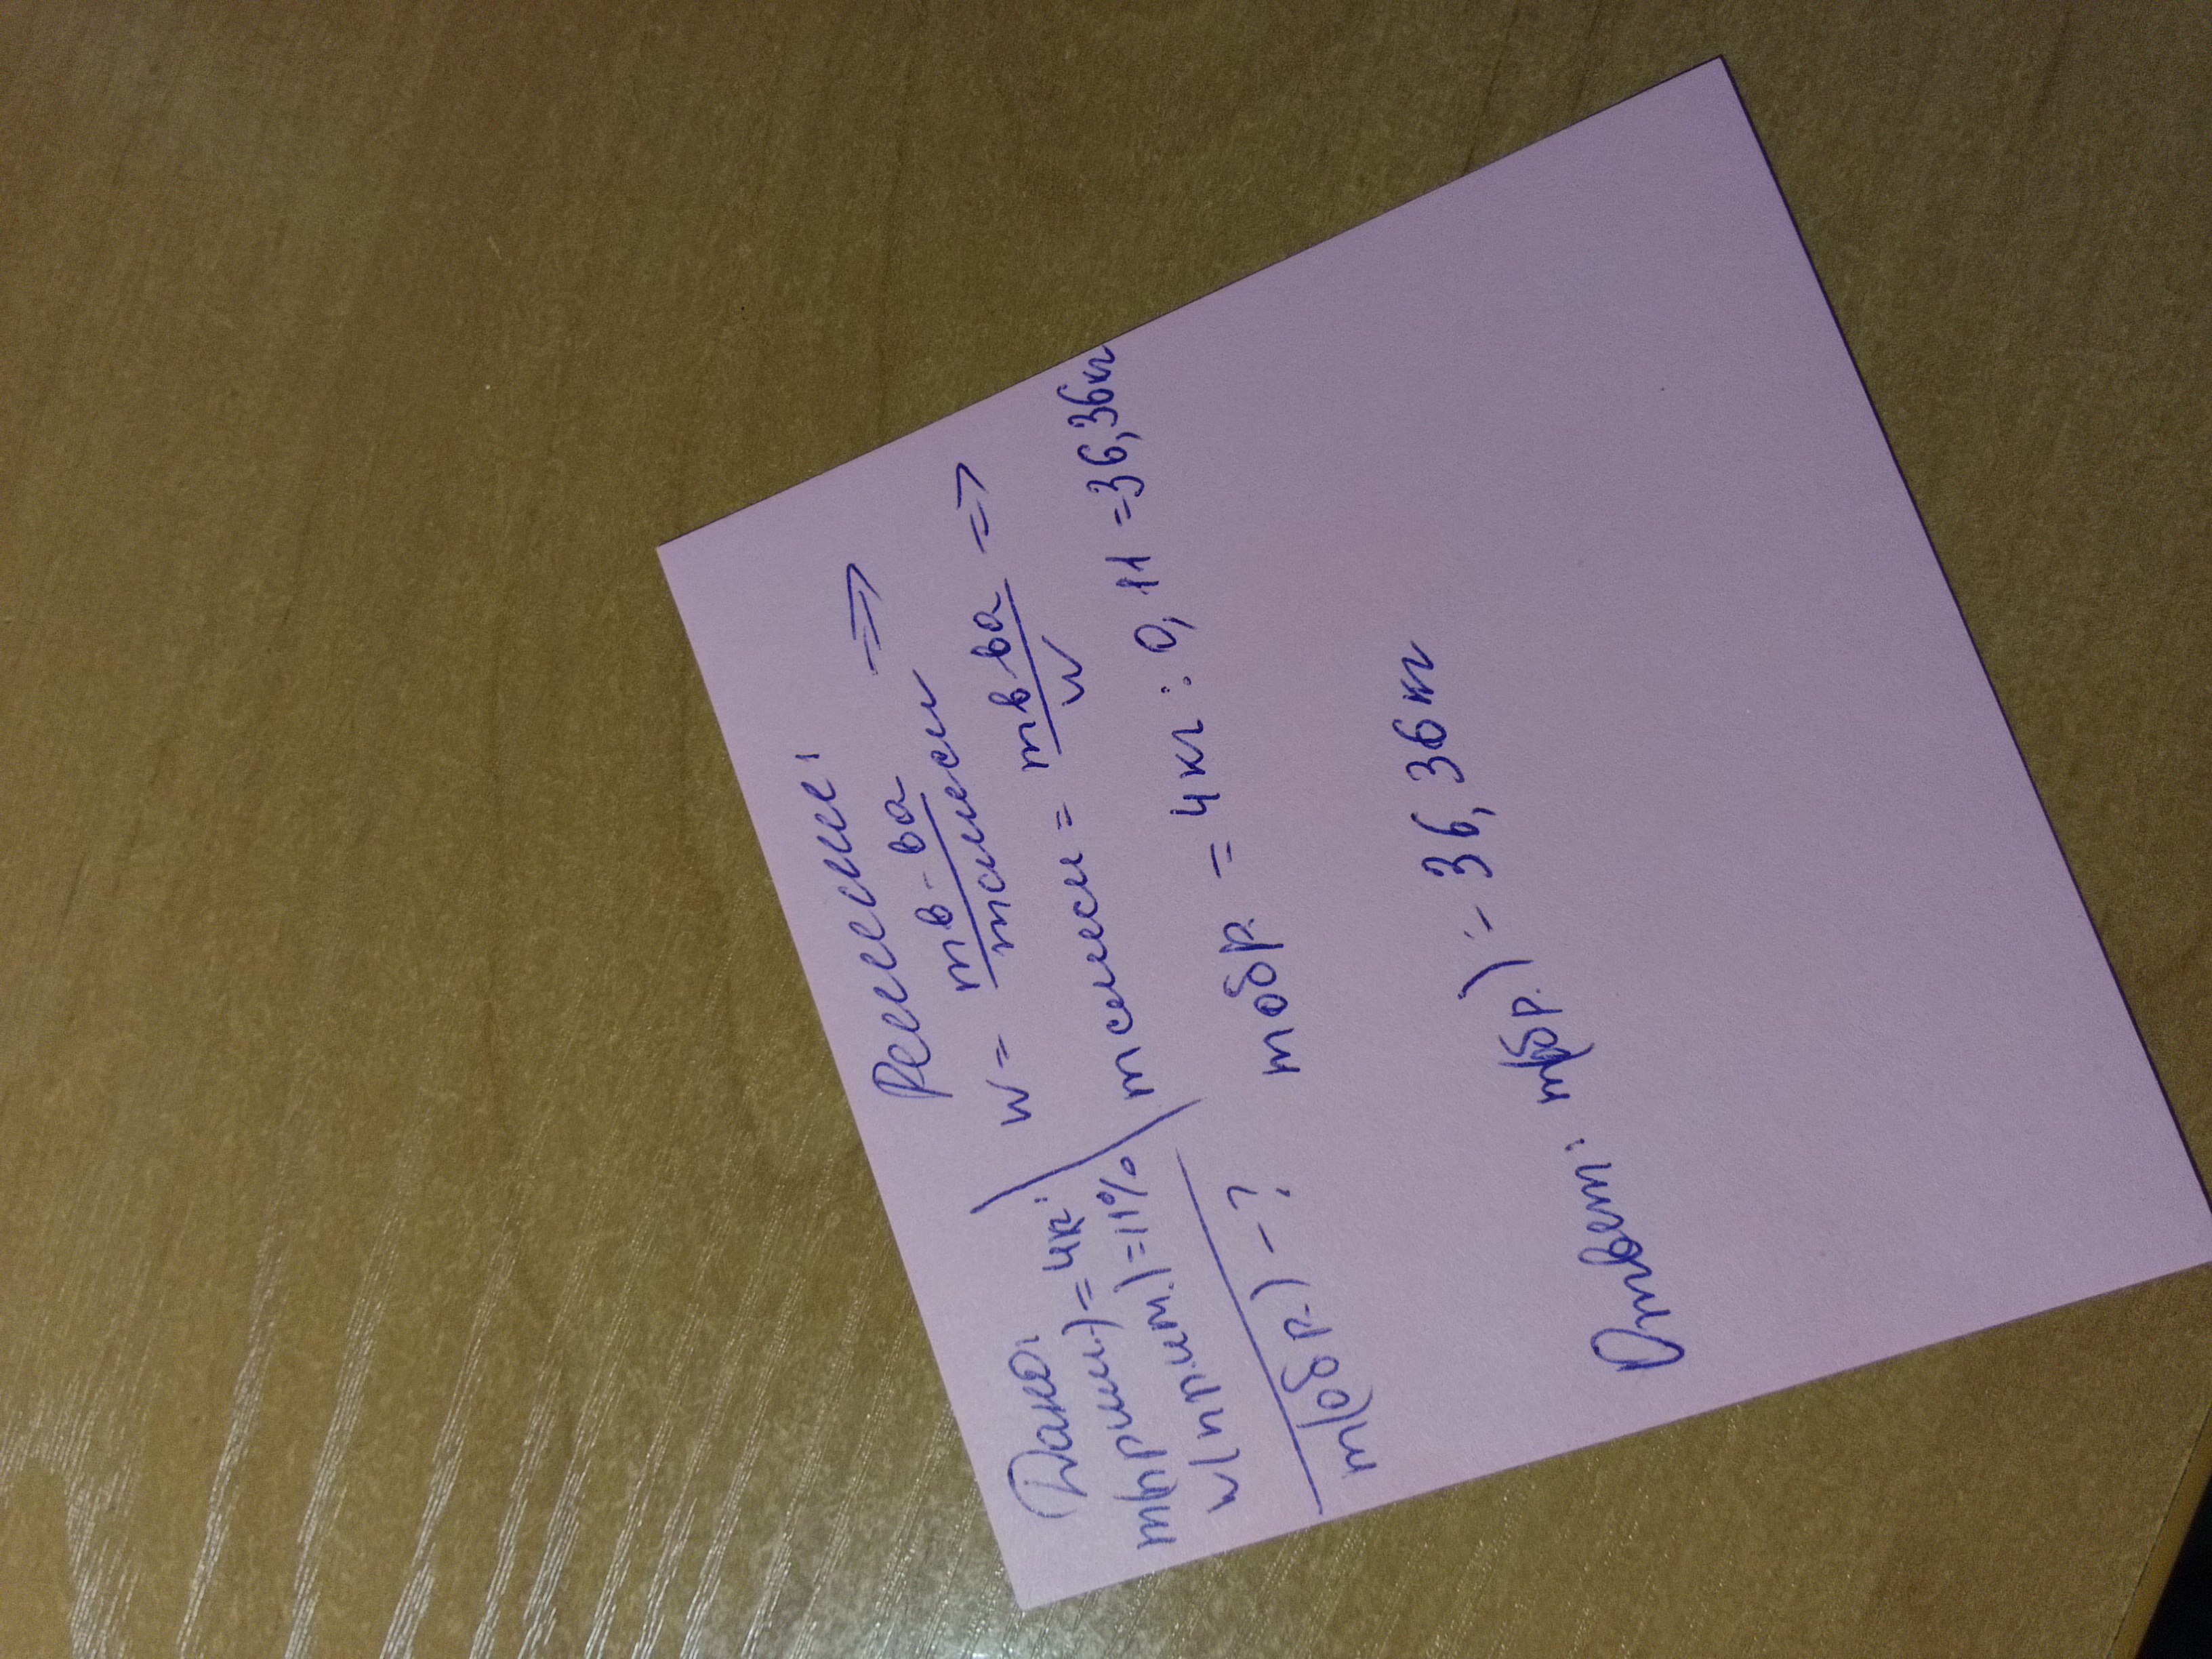 Дано:
m(прим.) = 4кг.
w(прим.) = 11%
m(обр.) - ?
Решение:
w = mв-ва / mсмеси =>
mсмеси = mв-ва / w =>
mобр. = 4кг : 0,11 = 36,36кг
Ответ: m(обр.) = 36,36кг